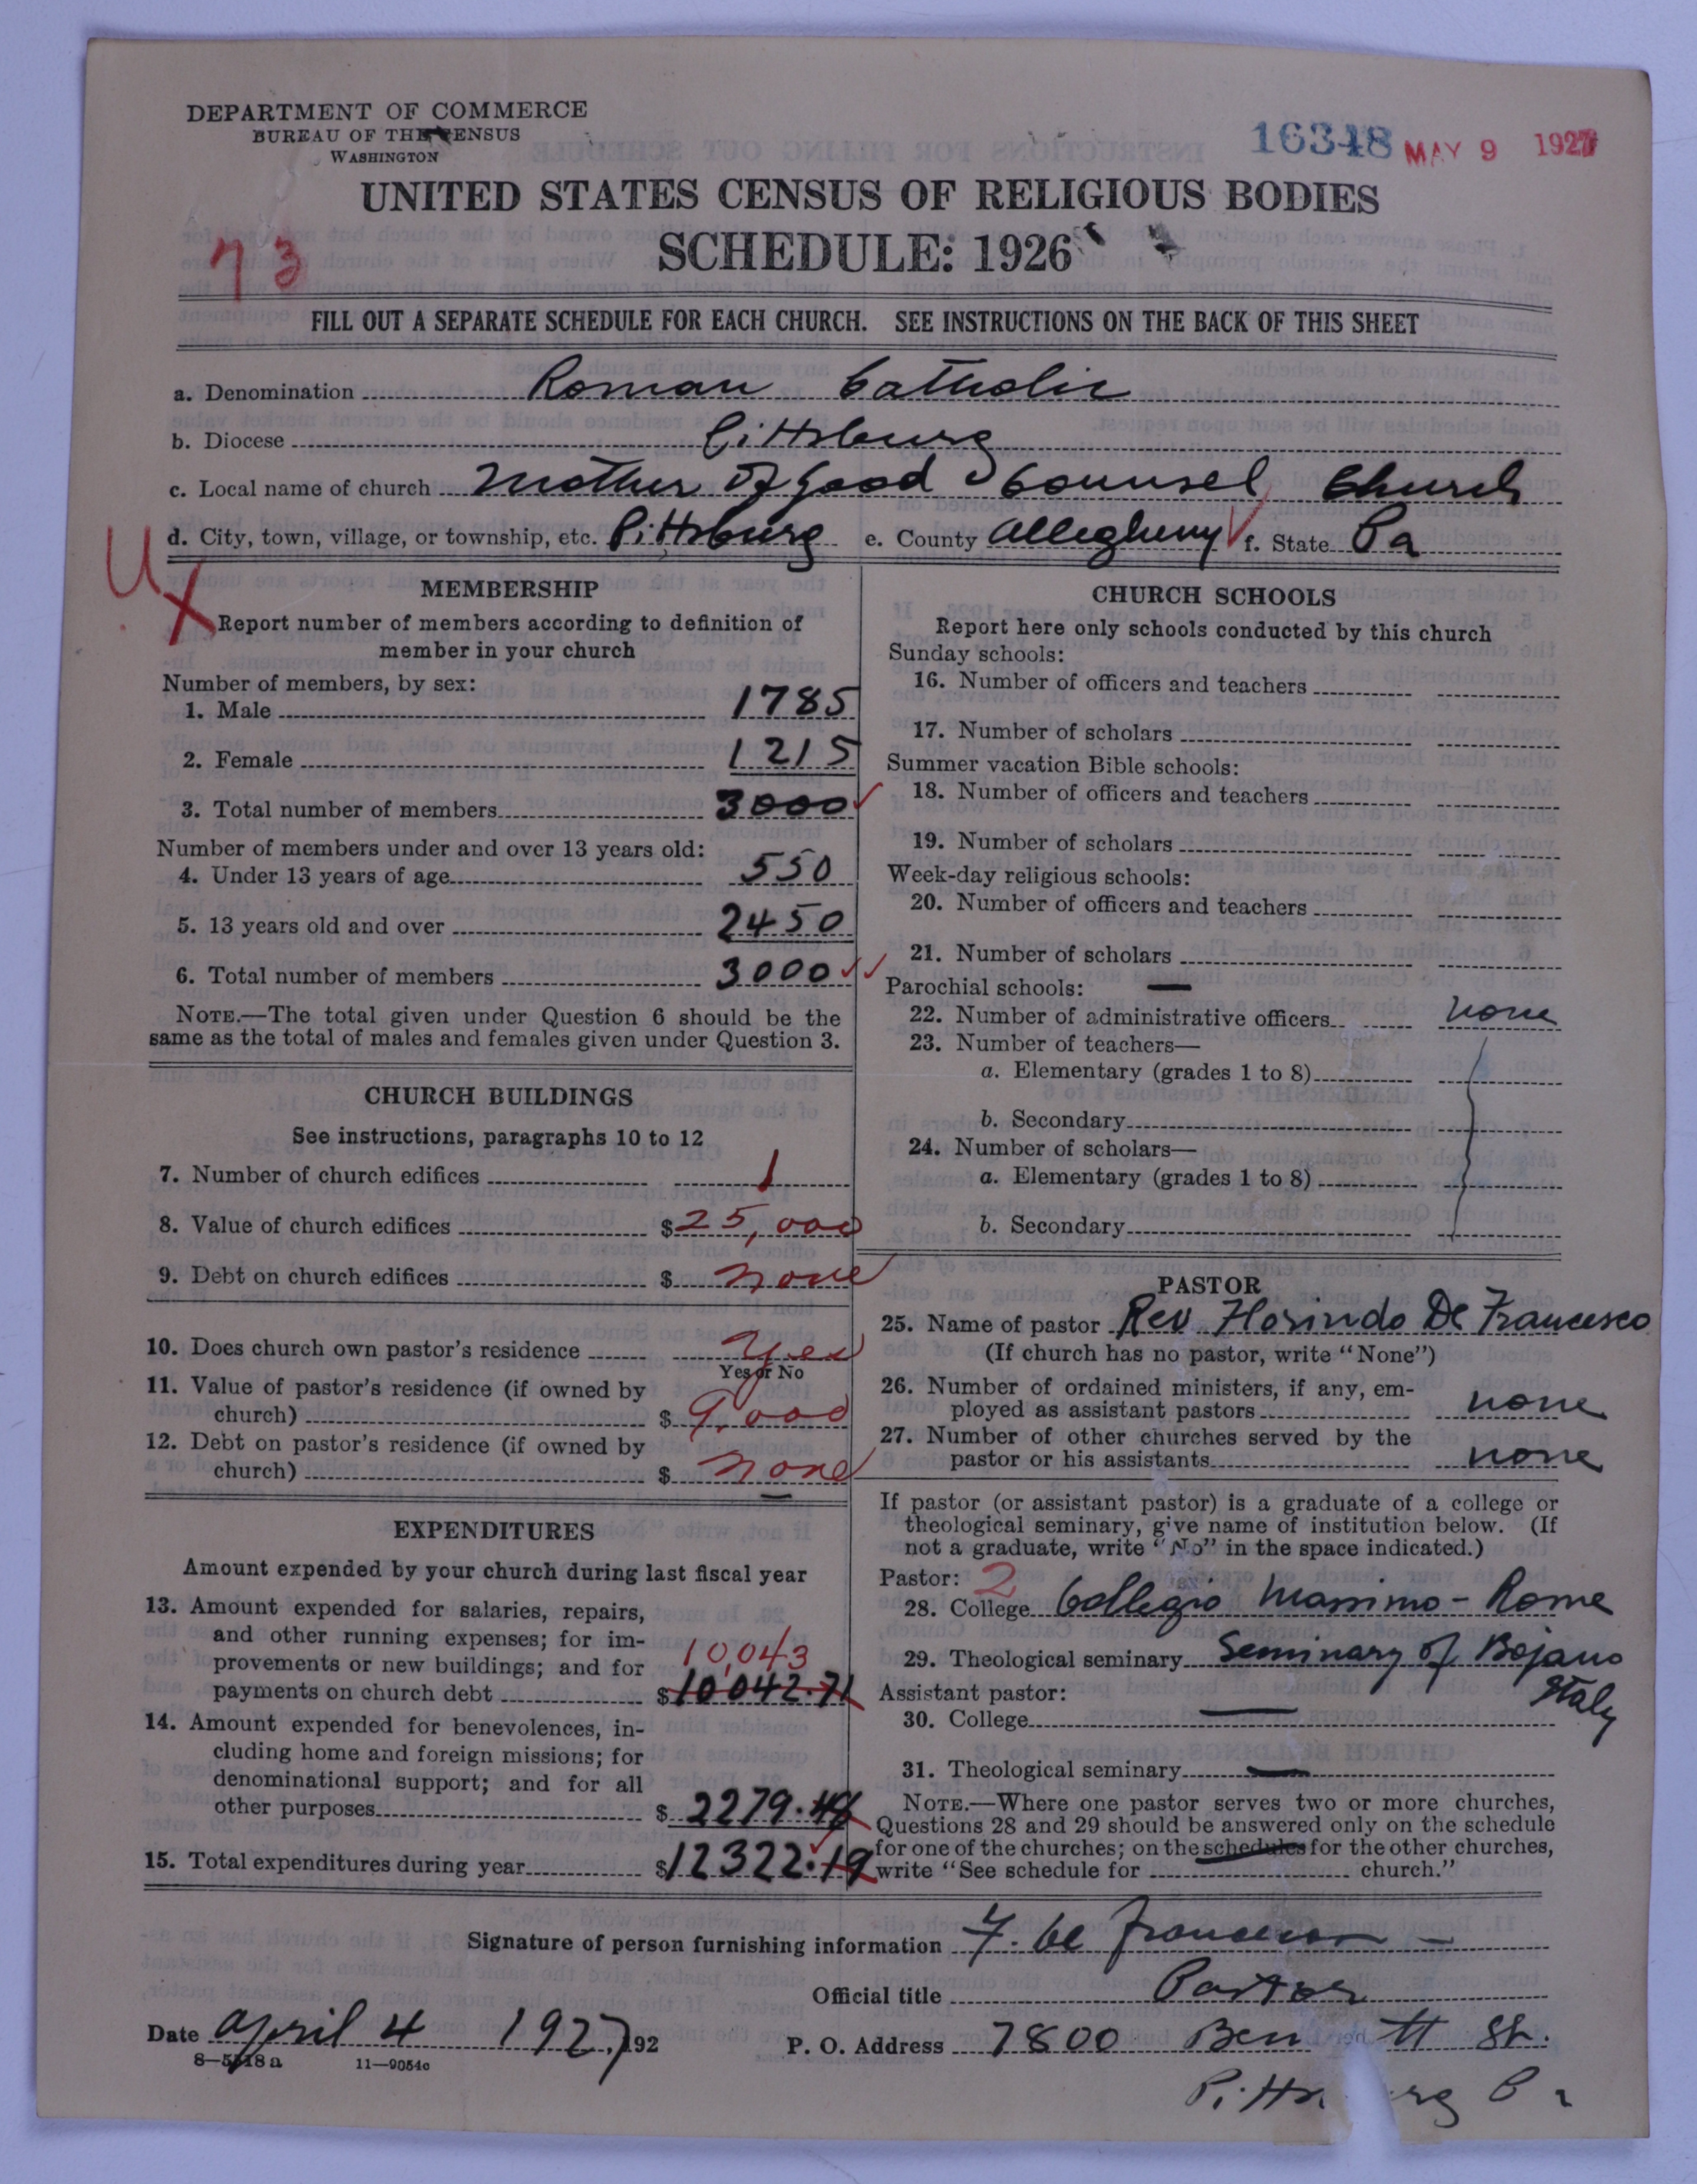 DEPARTMENT OF COMMERCE
BUREAU OF THE CENSUS
WASHINGTON
16348 MAY 9 1927
UNITED STATES CENSUS OF RELIGIOUS BODIES
SCHEDULE: 1926
73
FILL OUT A SEPARATE SCHEDULE FOR EACH CHURCH. SEE INSTRUCTIONS ON THE BACK OF THIS SHEET
a. Denomination Roman Catholic
b. Diocese Pittsburg
c. Local name of church Mother of Good Counsel Church
d. City, town, village, or township, etc. Pittsburg e. County Allegheny f. State Pa
U
X
MEMBERSHIP
Report number of members according to definition of
member in your church
Number of members, by sex:
1. Male 1785
2. Female 1215
3. Total number of members 3000
Number of members under and over 13 years old:
4. Under 13 years of age 550
5. 13 years old and over 2450
6. Total number of members 3000
NOTE.—The total given under Question 6 should be the
same as the total of males and females given under Question 3.
CHURCH BUILDINGS
See instructions, paragraphs 10 to 12
7. Number of church edifices 1
8. Value of church edifices $25,000
9. Debt on church edifices $ none
10. Does church own pastor's residence yes
Yes or No
11. Value of pastor's residence (if owned by
church) $ 9,000
12. Debt on pastor's residence (if owned by
church) $ none
EXPENDITURES
Amount expended by your church during last fiscal year
13. Amount expended for salaries, repairs,
and other running expenses; for im-
provements or new buildings; and for
10,043
payments on church debt $10042.71
14. Amount expended for benevolences, in-
cluding home and foreign missions; for
denominational support; and for all
other purposes $ 2279.48
15. Total expenditures during year $12322.19
CHURCH SCHOOLS
Report here only schools conducted by this church
Sunday schools:
16. Number of officers and teachers
17. Number of scholars
Summer vacation Bible schools:
18. Number of officers and teachers
19. Number of scholars
Week-day religious schools:
20. Number of officers and teachers
21. Number of scholars
Parochial schools: —
22. Number of administrative officers none
23. Number of teachers—
a. Elementary (grades 1 to 8)
b. Secondary
24. Number of scholars—
a. Elementary (grades 1 to 8)
b. Secondary
PASTOR
25. Name of pastor Rev. Florindo De Francesco
(If church has no pastor, write "None")
26. Number of ordained ministers, if any, em-
ployed as assistant pastors none
27. Number of other churches served by the
pastor or his assistants none
If pastor (or assistant pastor) is a graduate of a college or
theological seminary, give name of institution below. (If
not a graduate, write "No" in the space indicated.)
Pastor: 2
28. College Collegio Massimo - Rome
29. Theological seminary Seminary of Bojano
Italy
Assistant pastor:
30. College —
31. Theological seminary —
NOTE.—Where one pastor serves two or more churches,
Questions 28 and 29 should be answered only on the schedule
for one of the churches; on the schedules for the other churches,
write "See schedule for church."
Signature of person furnishing information F. De Francesco
Official title Pastor
Date April 4 1927, 192
P. O. Address 7800 Ben tt St.
8—5118a 11—9054c
Pittsburg Pa